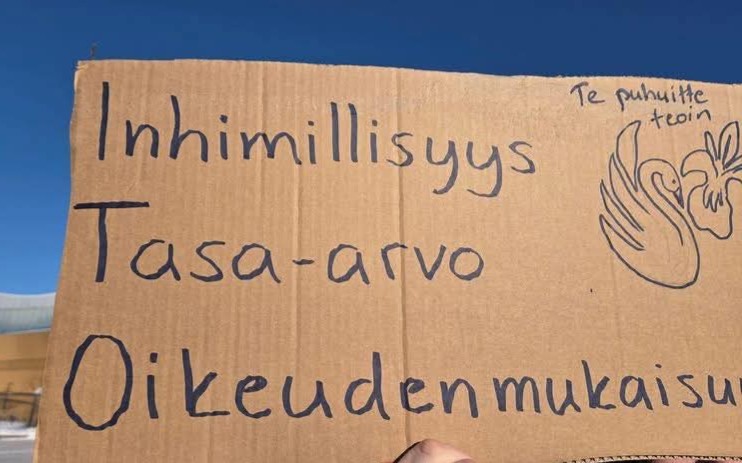 Inhimillisyys
Te puhuitte
teoin
Tasa-arvo
Oikeudenmukaisu